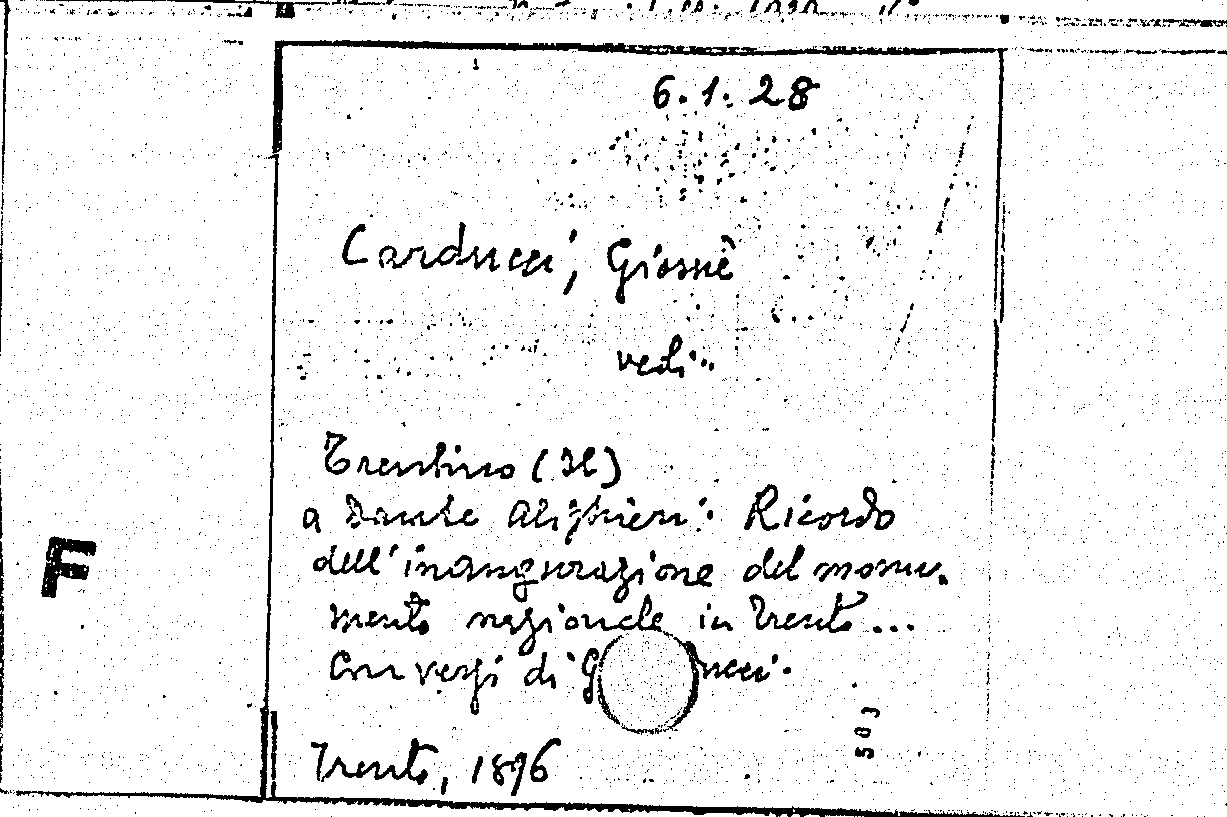 6.1.28
Carducci, Giosuè
vedi:
Trentino (Il)
a Dante Alighieri: Ricordo
dell'inaugurazione del monu-
mento nazionale in Trento...
Con versi di G ucci.
503
Trento, 1896
F